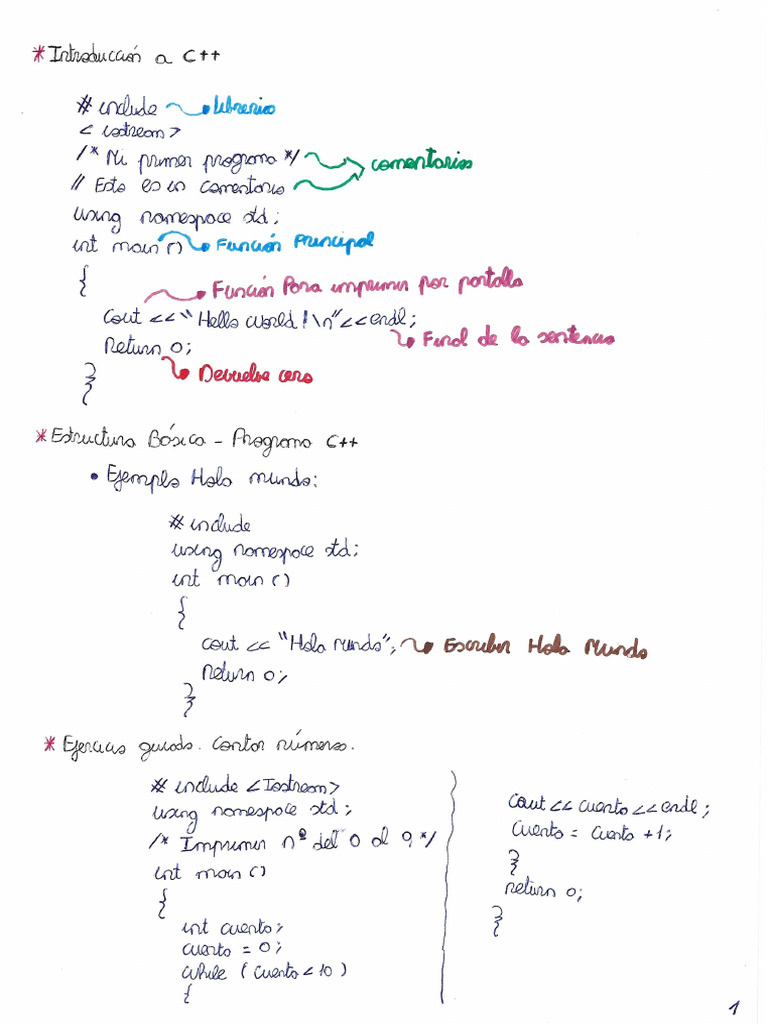 * Introducción a C++
# include librerias
< iostream >
/* Mi primer programa */ comentarios
// Esto es un comentario
using namespace std;
int main () Función Principal
{
Función Para imprimir por pantalla
cout << "Hello world!\n" << endl;
Final de la sentencia
Return 0;
Devuelve cero
}
* Estructura Básica - Programa C++
• Ejemplo Hola mundo:
# include
using namespace std;
int main ()
{
cout << "Hola mundo"; Escriber Hola Mundo
Return 0;
}
* Ejercicios guiado. Contar números.
# include <Iostream>
using namespace std;
/* Imprimir nº del 0 al 9 */
int main ()
{
int cuento;
cuento = 0;
while (cuento < 10 )
{
cout << cuento << endl;
cuento = cuento +1;
}
return 0;
}
1